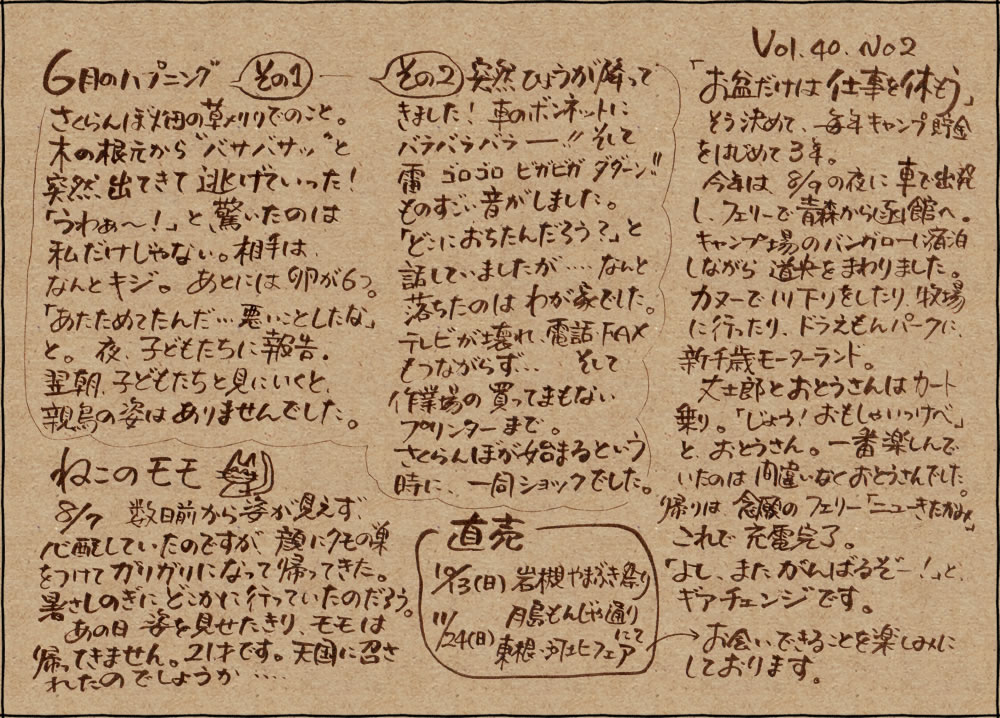 Vol. 40. No2
「お盆だけは仕事を休もう」
そう決めて、毎年キャンプ貯金
をはじめて3年。
今年は 8/9の夜に車で出発
し、フェリーで青森から函館へ。
キャンプ場のバンガローに宿泊
しながら 道央をまわりました。
カヌーで川下りをしたり、牧場
に行ったり、ドラえもんパークに、
新千歳モーターランド。
丈士郎とおとうさんはカート
乗り。「じょう!おもしゃいっけべ」
と、おとうさん。一番楽しんで
いたのは間違いなくおとうさんでした。
帰りは 念願の フェリー「ニューきたかみ」。
これで 充電完了。
「よし、また がんばるぞー!」と、
ギアチェンジです。
お会いできることを楽しみに
しております。
6月のハプニング その1
さくらんぼ畑の草刈りでのこと。
木の根元から"バサバサッ"と
突然出てきて逃げていった!
「うわぁ〜!」と驚いたのは
私だけじゃない。相手は、
なんとキジ。あとには卵が6つ。
「あたためてたんだ…悪いことしたな」
と。夜、子どもたちに報告。
翌朝、子どもたちと見にいくと、
親鳥の姿はありませんでした。
その2 突然ひょうが降って
きました!車のボンネットに
バラバラバラー!!そして
雷 ゴロゴロ ピカピカ ダダーン!!
ものすごい音がしました。
「どこにおちたんだろう?」と
話していましたが…‥なんと
落ちたのは わが家でした。
テレビが壊れ、電話・FAX
もつながらず… そして
作業場の買ってまもない
プリンターまで。
さくらんぼが始まるという
時に、一同ショックでした。
ねこのモモ
8/7 数日前から姿が見えず、
心配していたのですが、顔にクモの巣
をつけてガリガリになって帰ってきた。
暑さしのぎにどこかに行っていたのだろう。
あの日 姿を見せたきり、モモは
帰ってきません。21才です。天国に召さ
れたのでしょうか…‥
直売
10/13(日) 岩槻やまぶき祭り
11/24(日) 月島もんじゃ通り
にて
東根・河北フェア